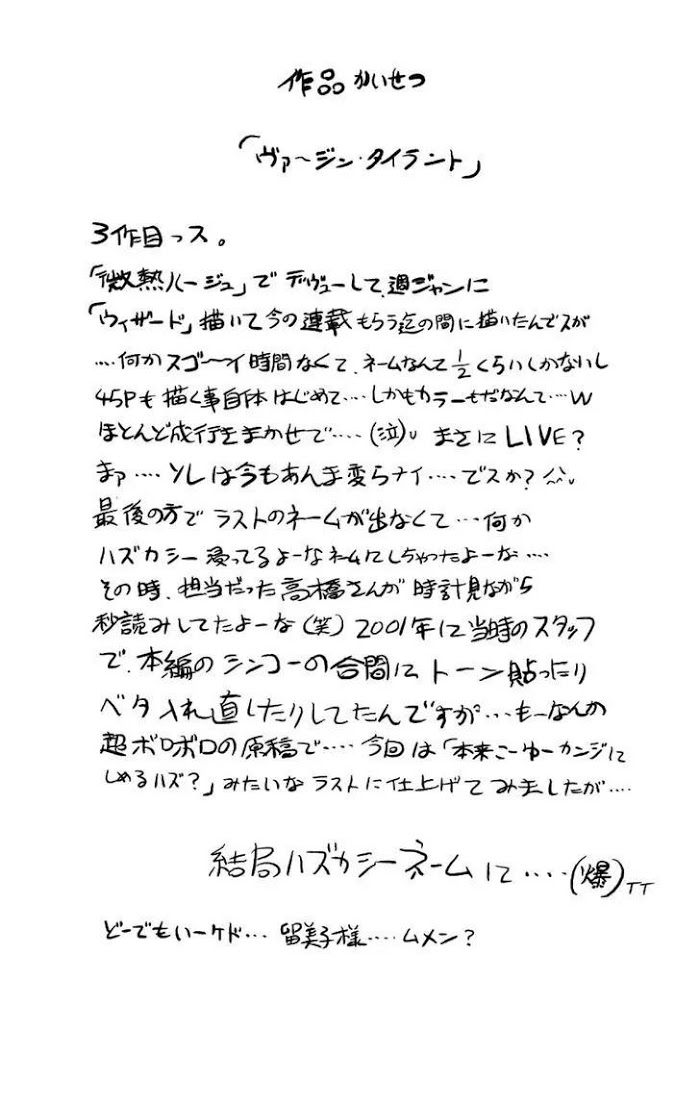 作品かいせつ
「ヴァ〜ジン・タイラント」
3作目っス。
「微熱ルージュ」でデヴューして、週ジャンに
「ウィザード」描いて今の連載もらう迄の間に描いたんでスが
....何かスゴ〜イ時間なくて、ネームなんて1/2くらいしかないし
45Pも描く事自体はじめて....しかもカラーもだなんて...w
ほとんど成行きまかせで....(泣) まさにLIVE?
まァ....ソレは今もあんま変らナイ....でスか?^^;
最後の方でラストのネームが出なくて...何か
ハズカシー浸ってるよーなネームにしちゃったよーな....
その時、担当だった高橋さんが時計見ながら
秒読みしてたよーな(笑)2001年に当時のスタッフ
で、本編のシンコーの合間にトーン貼ったり
ベタ入れ直したりしてたんですが...もーなんか
超ボロボロの原稿で....今回は「本来こーゆーカンジに
しめるハズ?」みたいなラストに仕上げてみましたが....
結局ハズカシーネームに....(爆)TT
どーでもいーケド...留美子様....ムメン?